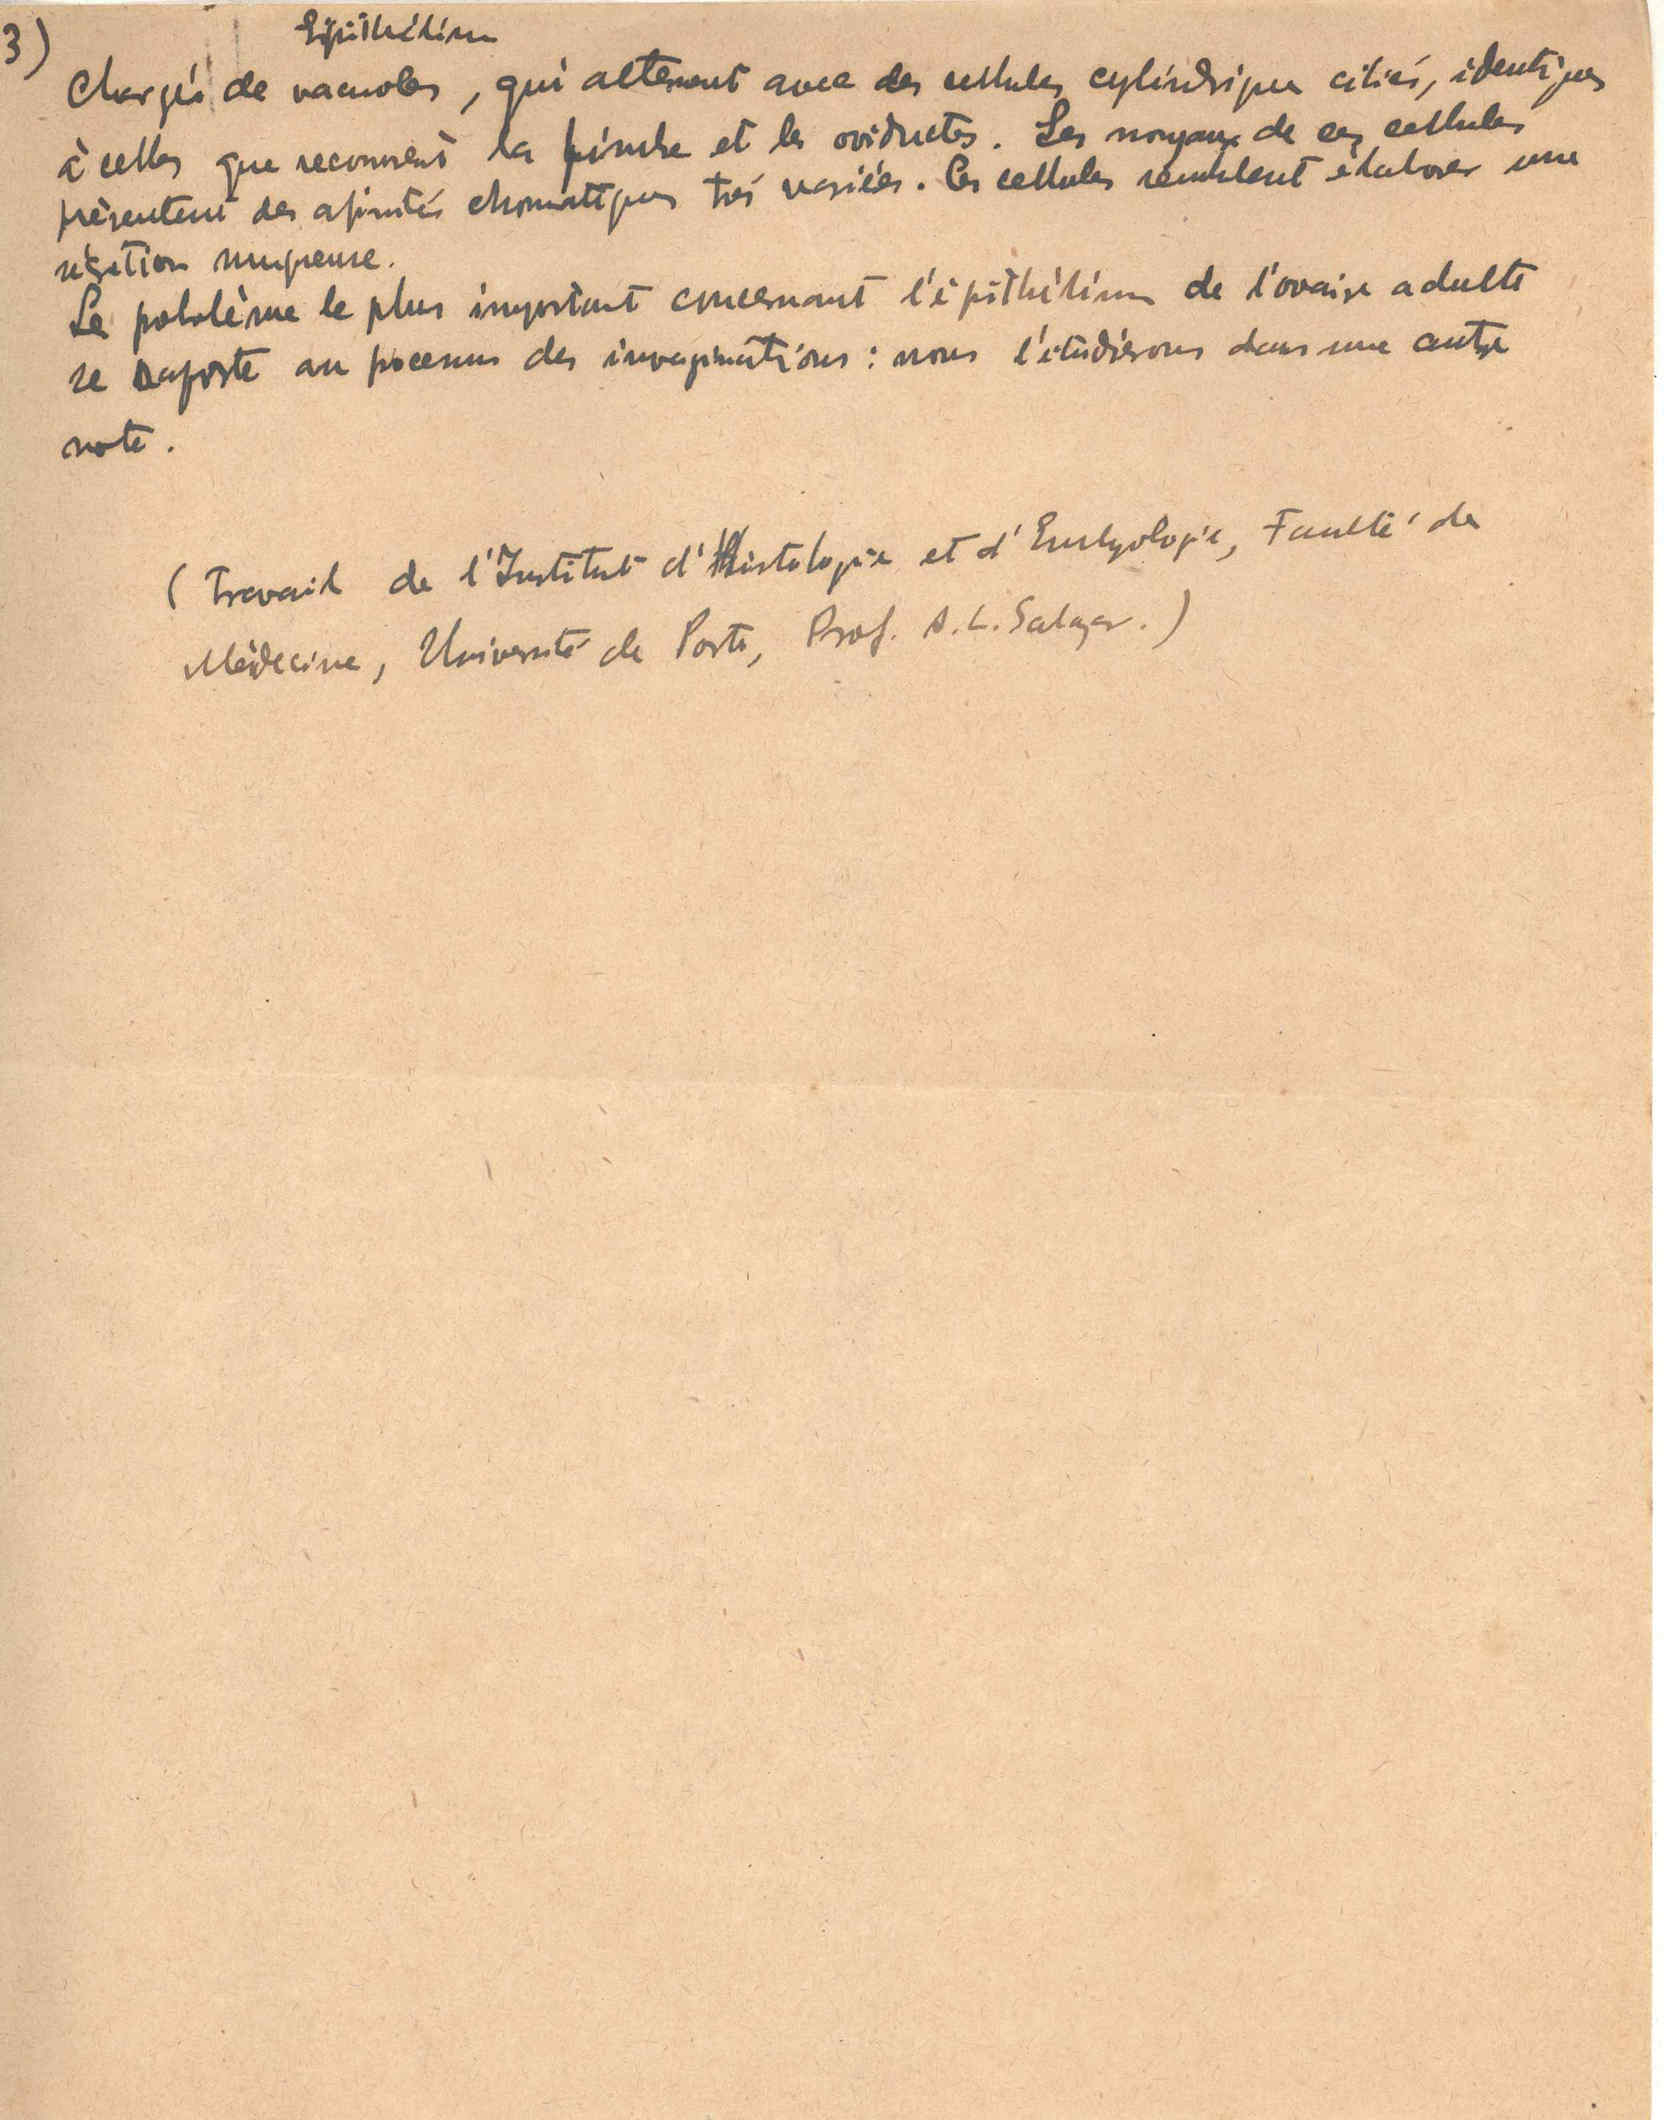 3)
Epithélium
Chargés de vacuoles, qui alternent avec des cellules cylindriques ciliés, identiques
à celles que recouvrent la et les oviductes. Les noyaux de ces cellules
présentent des afinités chromatiques très variées. Ces cellules semblent élaborer une
muqueuse.
Le problème le plus important concernant l'épithélium de l'ovaire adulte
se raporte au processus des invaginations : nous l'étudierons dans une autre
note.
(Travail de l'Institut d'Histologie et d'Embryologie, Faculté de
Médecine, Université de Porto, Prof. A. L. Salazar.)